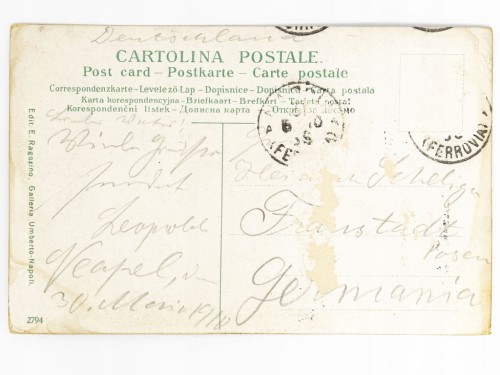 Deutschland
CARTOLINA POSTALE.
Post card – Postkarte – Carte postale
Correspondenzkarte – Levelező Lap – Dopisnice – Dopisnica – Karta postala
Karta korespondencyjna – Briefkaart – Brefkort – Tarjeta postal
Korespondenční lístek – Дописна карта – Открытое письмо
Viele Grüsse
sendet
Leopold
Neapel, den
30. März 1910
Herrn
Fraustadt
Posen
Germania
(FERROVIA)
Edit. E. Ragozino, Galleria Umberto-Napoli.
2794